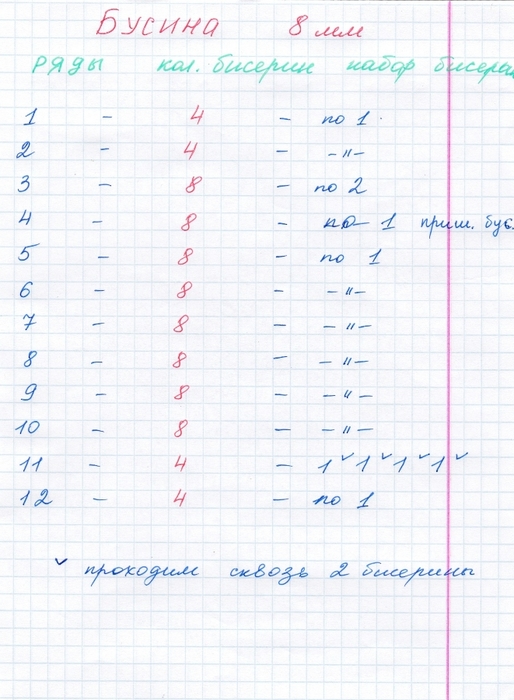 Бусина 8 мм
ряды кол. бисерин набор бисера
1 - 4 - по 1.
2 - 4 - -"-
3 - 8 - по 2
4 - 8 - по 1 приш. бус.
5 - 8 - по 1
6 - 8 - -"-
7 - 8 - -"-
8 - 8 - -"-
9 - 8 - -"-
10 - 8 - -"-
11 - 4 - 1 ✓ 1 ✓ 1 ✓ 1 ✓
12 - 4 - по 1
✓ проходим сквозь 2 бисерины